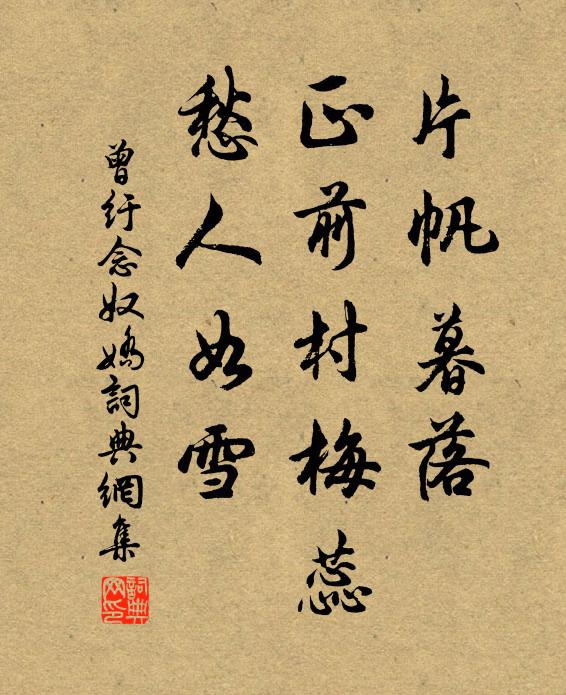 片帆暮落
正前村梅蕊
愁人如雪
曾纡念奴嬌詞典網集
詞典网印